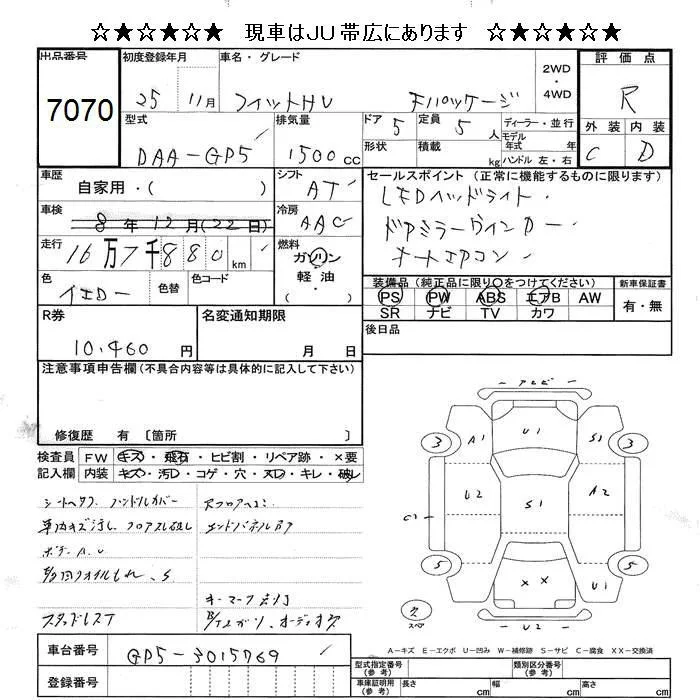 ☆★☆★☆★ 現車はJU帯広にあります ☆★☆★☆★
出品番号 7070
初度登録年月 25 11月
車名・グレード フィットHV Fパッケージ
2WD・4WD
評価点 R
外装 C 内装 D
型式 DAA-GP5
排気量 1500cc
ドア 5
定員 5人
形状
積載 kg
ディーラー・並行
モデル年式 年式
ハンドル 左・右
車歴 自家用・( )
シフト AT
セールスポイント(正常に機能するものに限ります)
LEDヘッドライト・
ドアミラーウインカー・
オートエアコン・
車検 8年12月(22日)
冷房 AAC
走行 16万7千880km
燃料 ガソリン・軽油・( )
色 イエロー
色替
色コード
装備品(純正品に限り○をつけてください)
PS PW ABS エアB AW
SR ナビ TV カワ
新車保証書 有・無
R券 10,460円
名変通知期限 月 日
後日品
注意事項申告欄(不具合内容等は具体的に記入して下さい)
修復歴 有 〔箇所 〕
検査員記入欄
FW キズ・飛石・ヒビ割・リペア跡・×要
内装 キズ・汚レ・コゲ・穴・スレ・キレ・破レ
ハンドルカバー
車内キズ汚れ、フロアスレ破れ
ボデーA、U
スタッドレスT
キーマーク点灯
アムビ
A1 U1 S1
3 3
U2 S1 A2
5 5
×× U1
U2
スペア
A-キズ E-エクボ U-凹み W-補修跡 S-サビ C-腐食 XX-交換済
車台番号 GP5-3015769
登録番号
型式指定番号(参考)
類別区分番号(参考)
車庫証明用(参考) 長さ cm 幅 cm 高さ cm